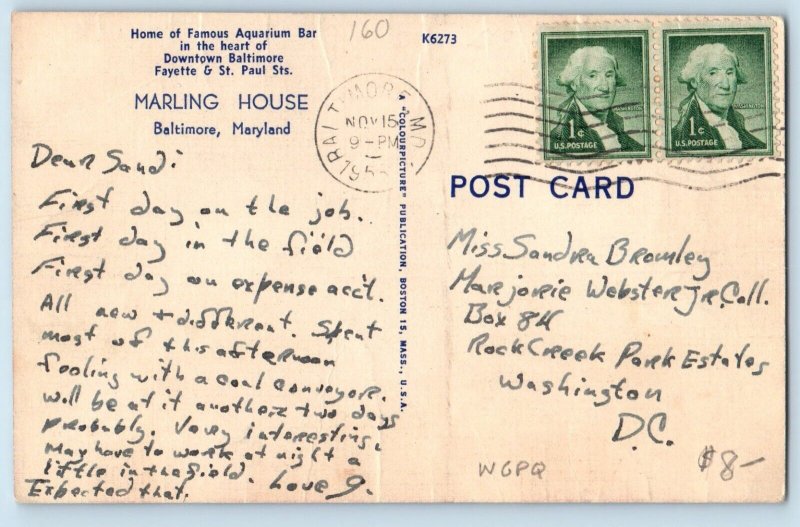 Home of Famous Aquarium Bar
in the heart of
Downtown Baltimore
Fayette & St. Paul Sts.
MARLING HOUSE
Baltimore, Maryland
160
K6273
BALTIMORE, MD.
NOV 15
9 - PM
195
WASHINGTON
1¢
U.S. POSTAGE
WASHINGTON
1¢
U.S. POSTAGE
A "COLOURPICTURE" PUBLICATION, BOSTON 15, MASS., U.S.A.
Dear Sandi
First day on the job.
First day in the field
First day on expense acc't.
All new + different. Spent
most of this afternoon
fooling with a coal conveyor.
will be at it another two days
probably. Very interesting.
May have to work at night a
little in the field.
Expected that. Love J.
POST CARD
Miss Sandra Bromley
Marjorie Webster Jr. Coll.
Box 8H
Rock Creek Park Estates
Washington
D.C.
WGPQ
$8-